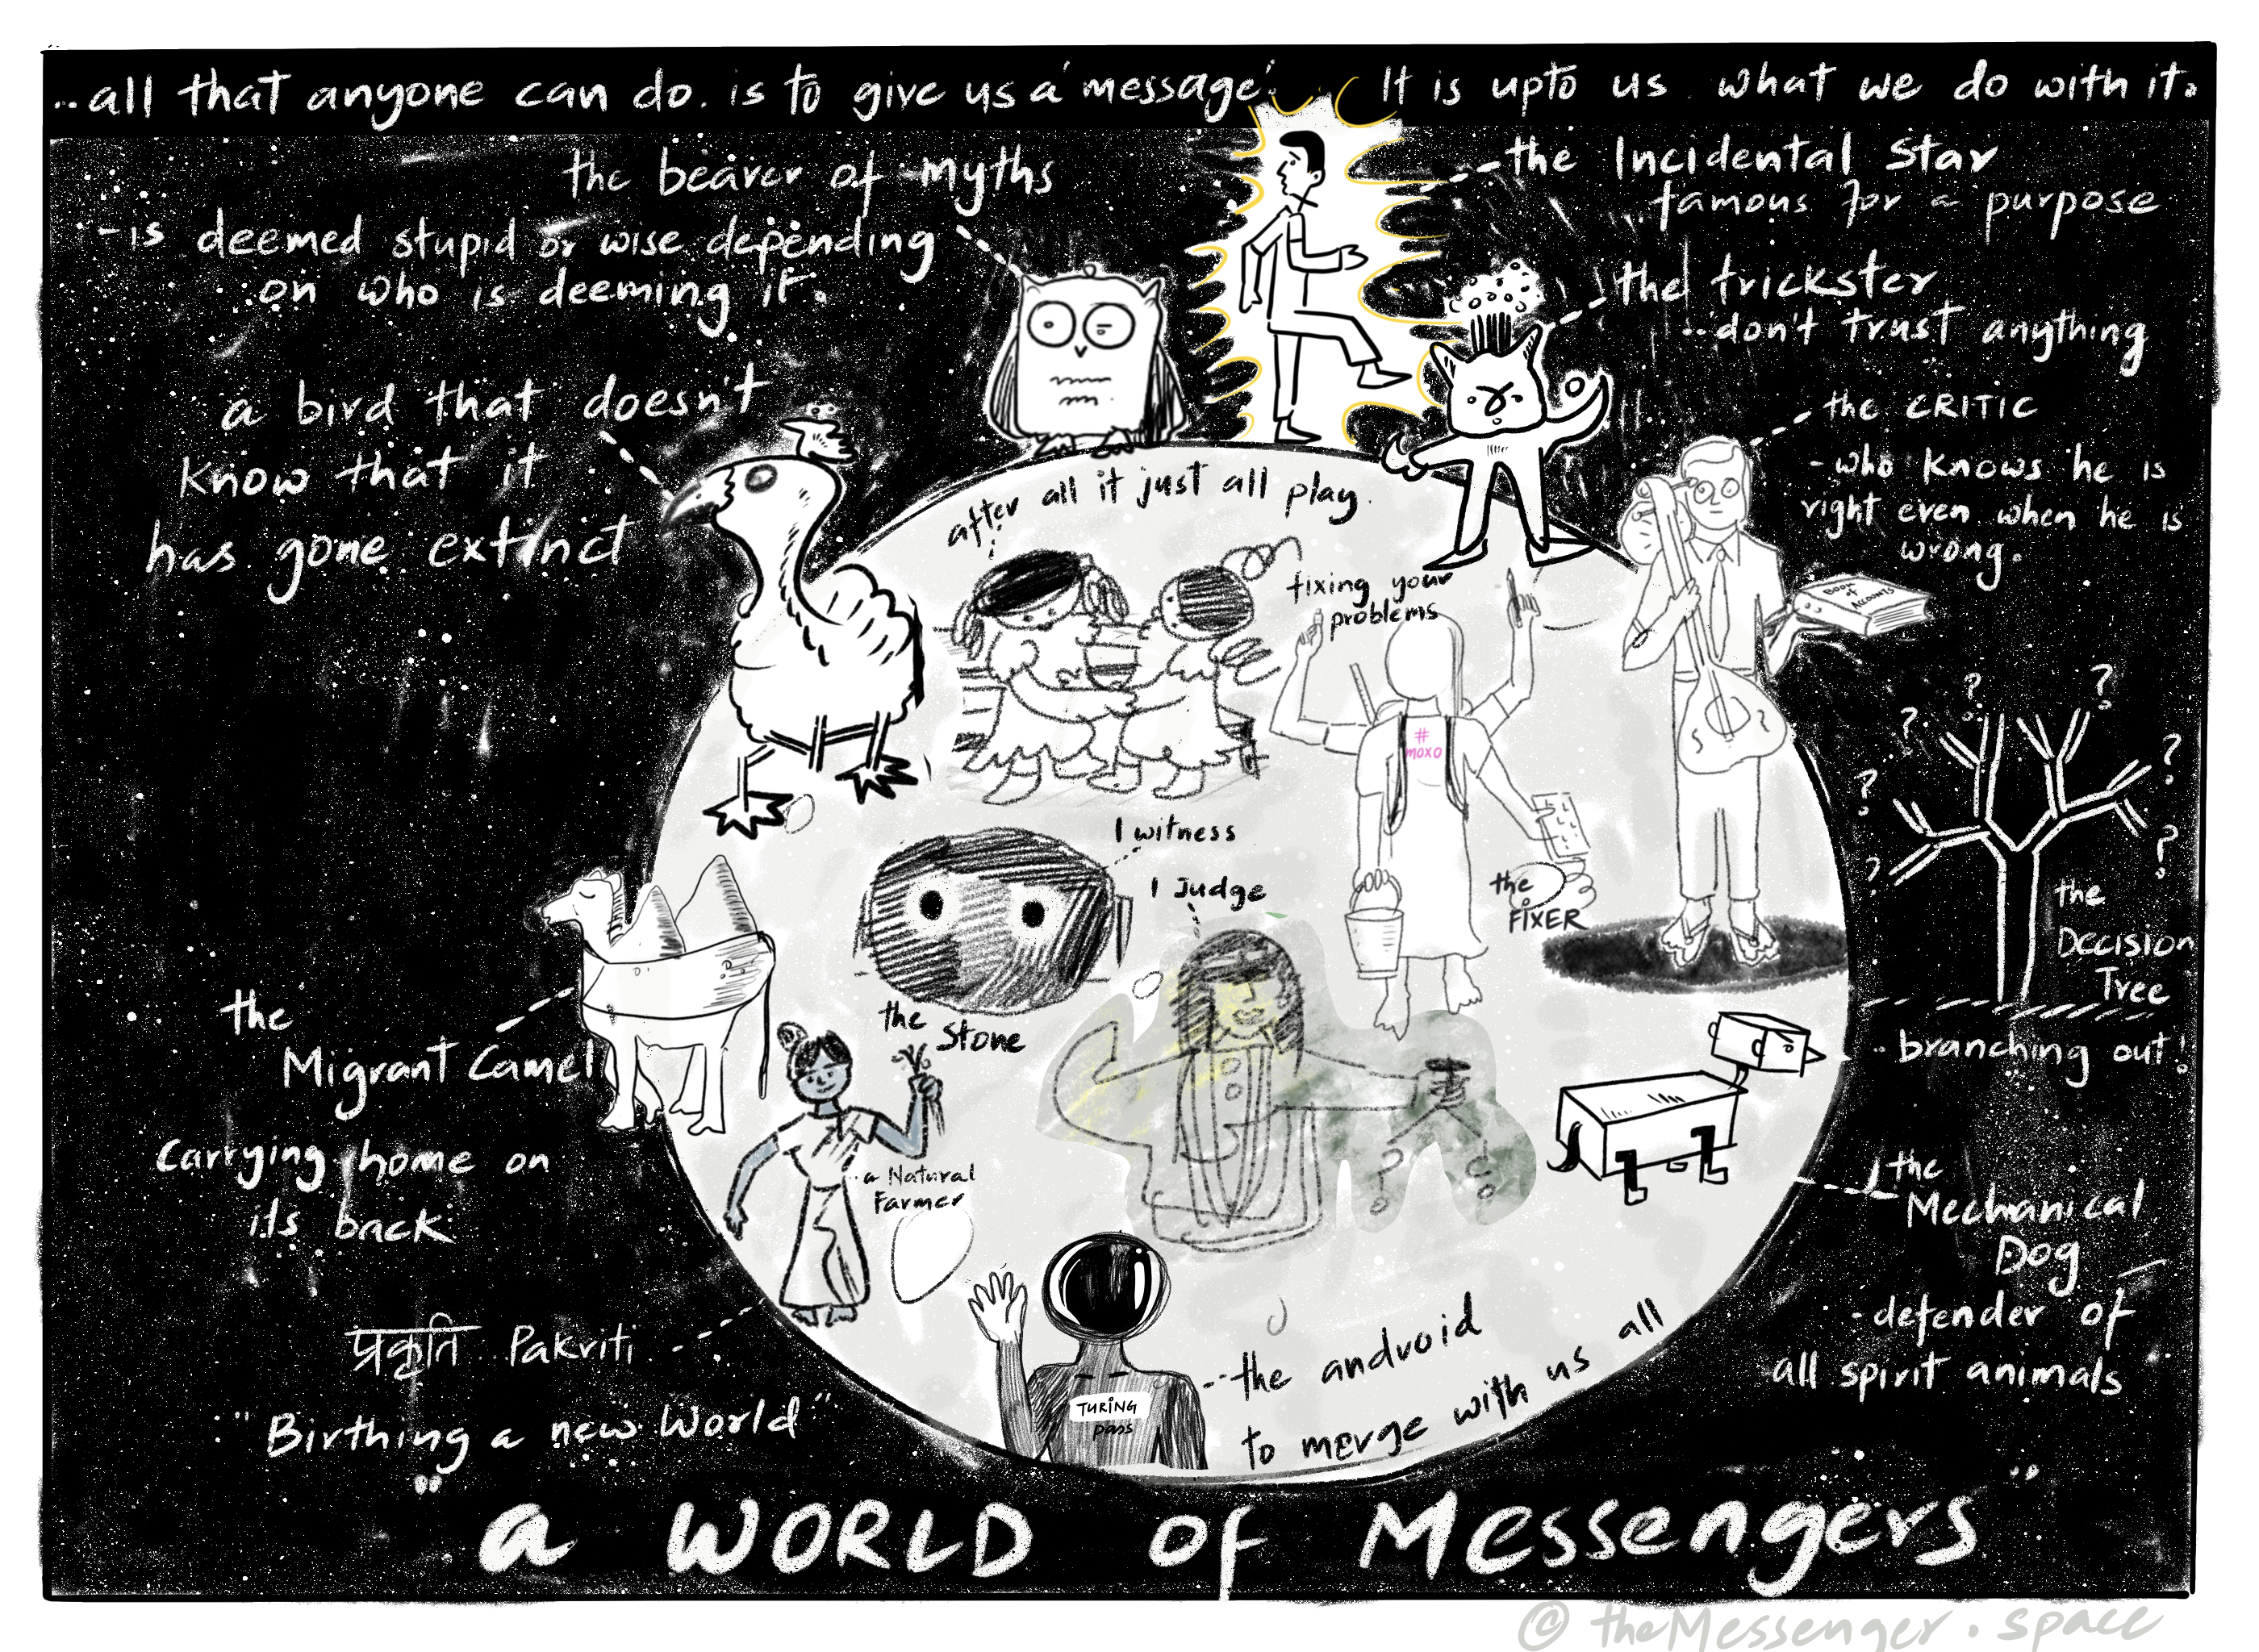 ..all that anyone can do. is to give us a 'message'. It is upto us what we do with it.
the bearer of myths
- is deemed stupid or wise depending
on who is deeming it.
the Incidental Star
famous for a purpose
the trickster
..don't trust anything
a bird that doesn't
know that it
has gone extinct
the CRITIC
- who knows he is
right even when he is
wrong.
BOOK
of
ACCOUNTS
after all it just all play.
fixing your
problems
#
moxo
the
FIXER
? ? ? ? ? ? ?
the
Decision
Tree
..branching out!
I witness
the Stone
I Judge
the
Migrant Camel
Carrying home on
its back
a Natural
Farmer
the
Mechanical
Dog
- defender of
all spirit animals
प्रकृति .. Pakriti
"Birthing a new World"
TURING
pass
the android
to merge with us all
"a WORLD of Messengers"
@ theMessenger.space